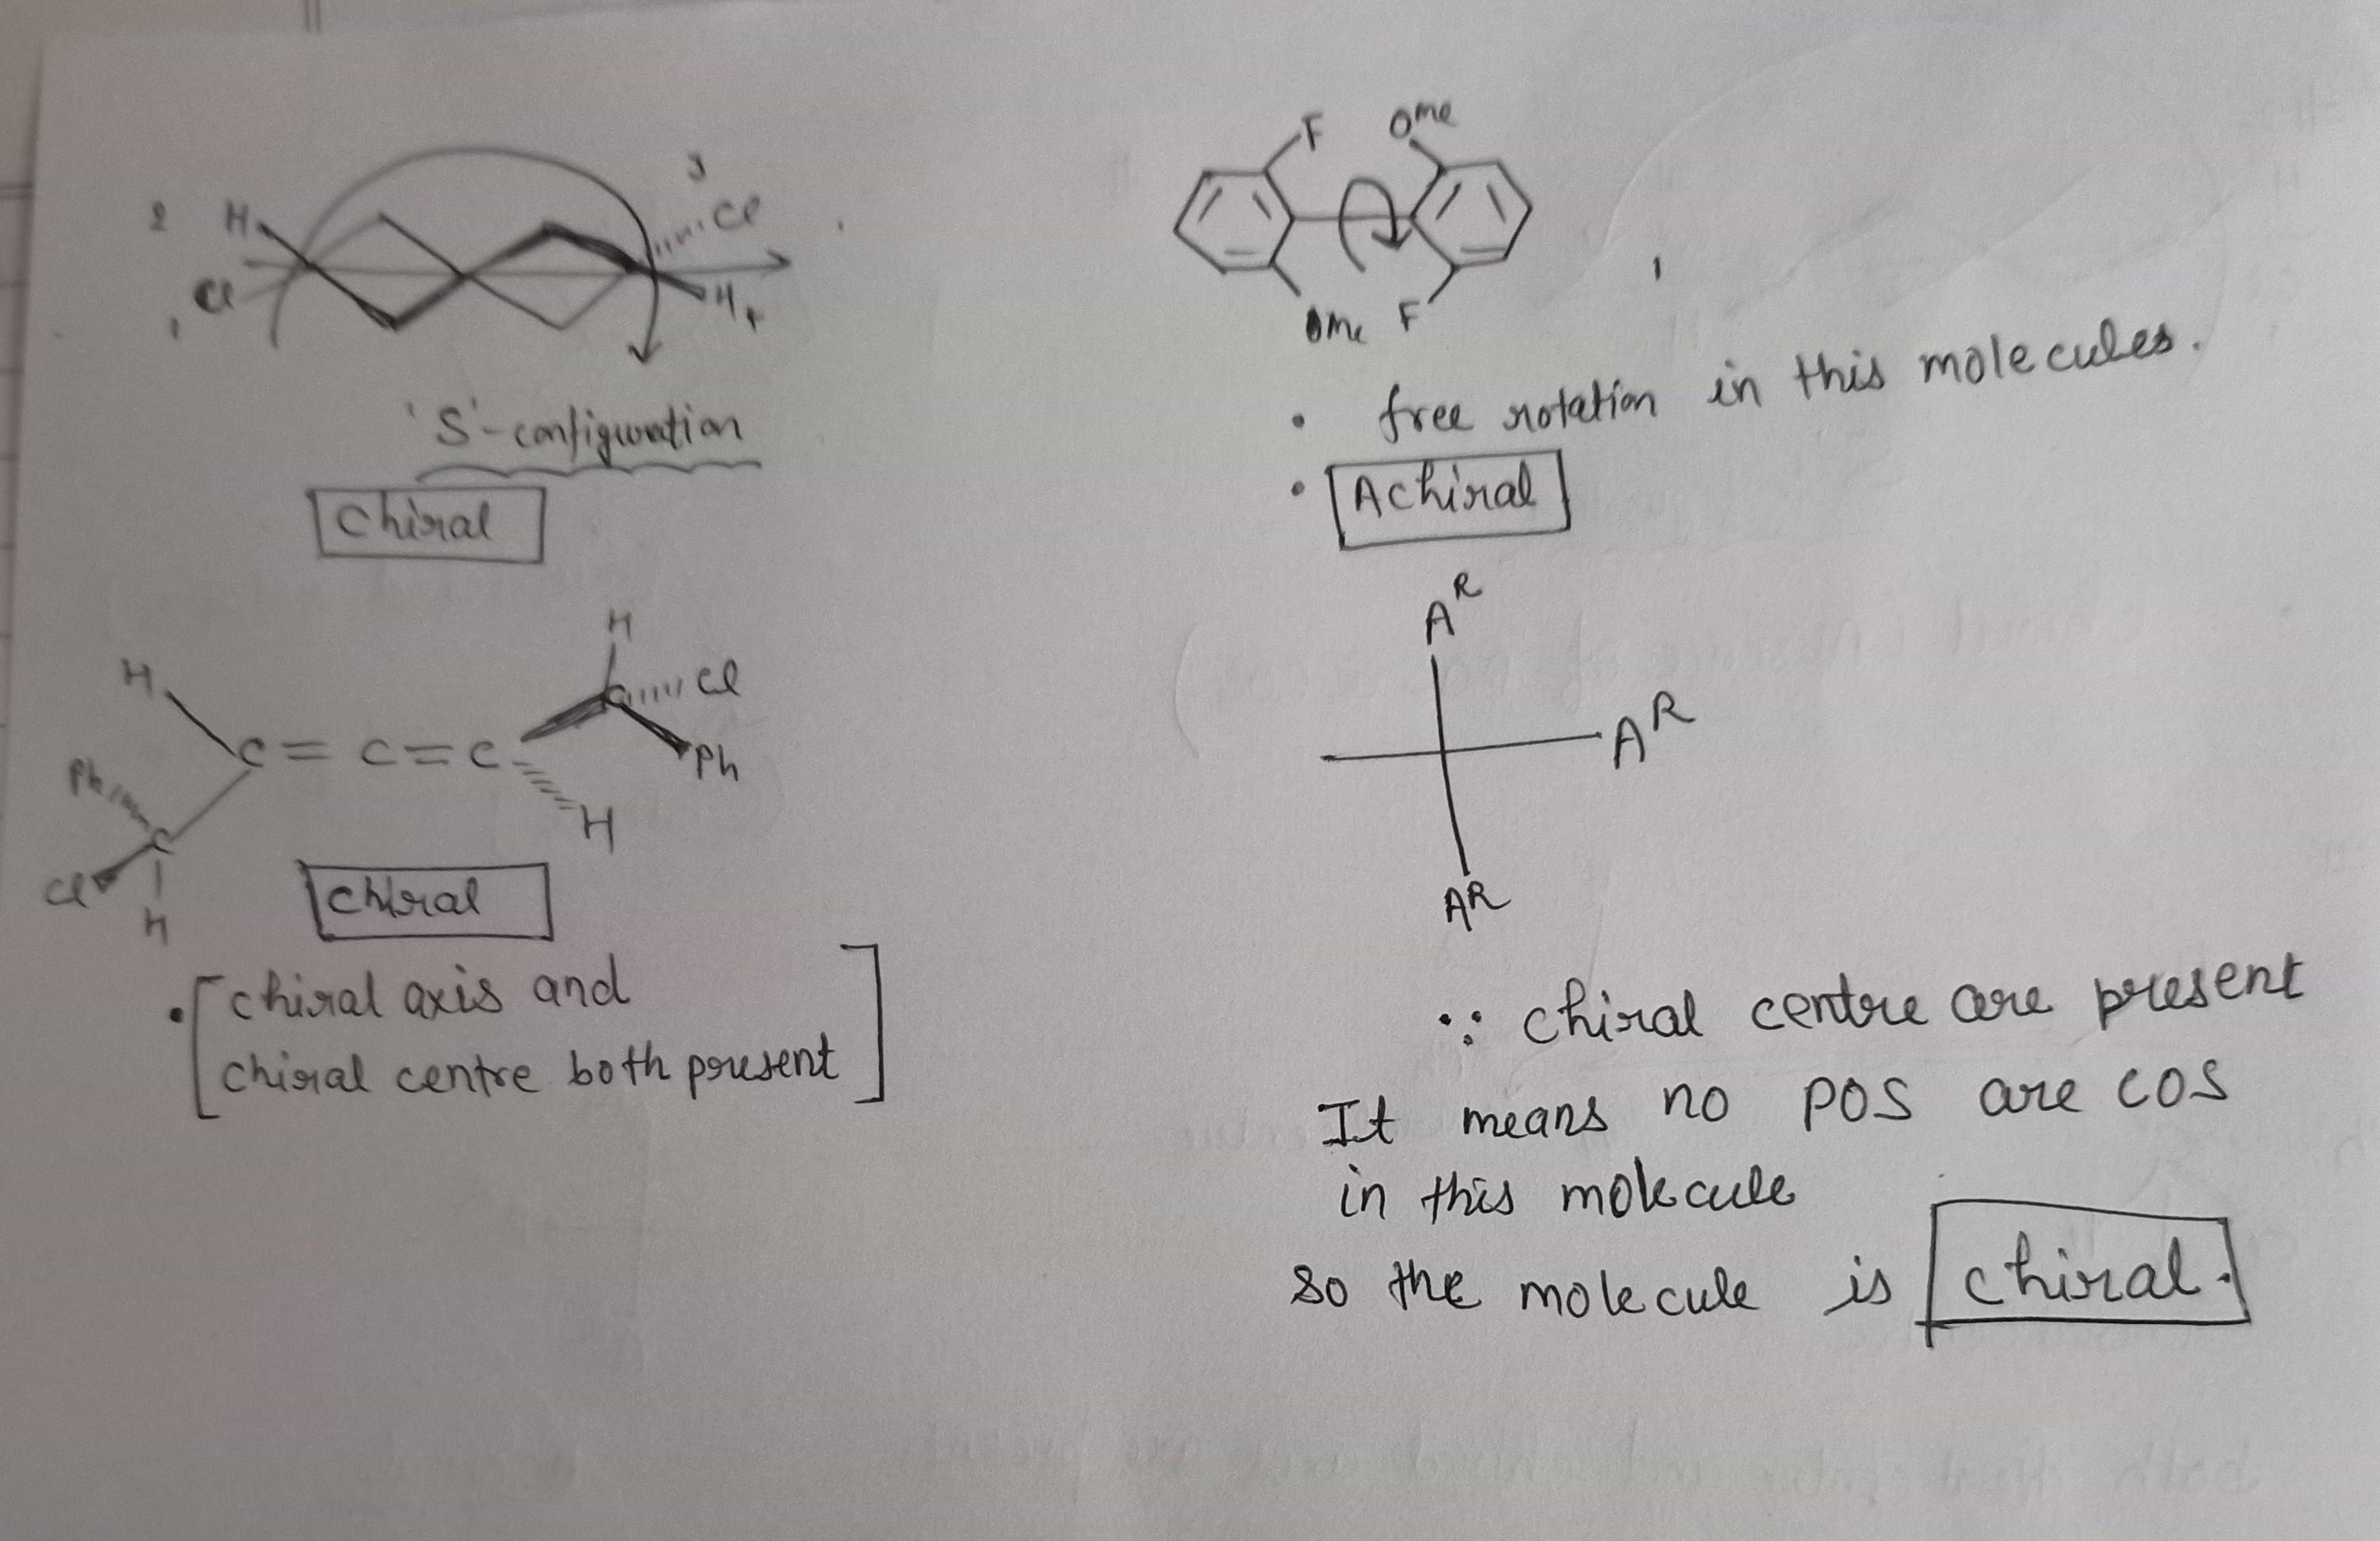 2 H
3
Cl
1 Cl
H 4
'S'-configuration
Chiral
F OMe
OMe F
• free rotation in this molecules.
• Achiral
H
H
C = C = C
C Cl
Ph
H
Ph
C
Cl
H
chiral
• [chiral axis and
chiral centre both present]
A^R
A^R
AR
∵ chiral centre are present
It means no POS are COS
in this molecule
so the molecule is chiral.